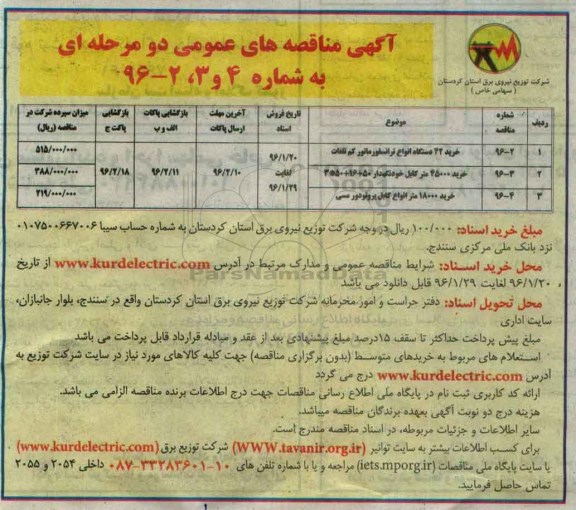 آگهی مناقصه های عمومی دو مرحله ای
به شماره ۴ و۳، ۲-۹۶
شرکت توزیع نیروی برق استان کردستان
( سهامی خاص )
ردیف | شماره مناقصه | موضوع | تاریخ فروش اسناد | آخرین مهلت ارسال پاکات | بازگشایی پاکات الف و ب | بازگشایی پاکت ج | میزان سپرده شرکت در مناقصه (ریال)
۱ | ۹۶-۲ | خرید ۴۲ دستگاه انواع ترانسفورماتور کم تلفات | ۹۶/۱/۲۰ لغایت ۹۶/۱/۲۹ | ۹۶/۲/۱۰ | ۹۶/۲/۱۱ | ۹۶/۲/۱۸ | ۵۱۵/۰۰۰/۰۰۰
۲ | ۹۶-۳ | خرید ۴۵۰۰۰ متر کابل خودنگهدار | ۳۸۸/۰۰۰/۰۰۰
۳ | ۹۶-۴ | خرید ۱۸۰۰۰ متر انواع کابل پروتودور مسی | ۲۱۹/۰۰۰/۰۰۰
مبلغ خرید اسناد: ۱۰۰/۰۰۰ ریال در وجه شرکت توزیع نیروی برق استان کردستان به شماره حساب سیبا ۰۱۰۷۵۰۰۶۶۷۰۰۶
نزد بانک ملی مرکزی سنندج.
محل خرید اسناد: شرایط مناقصه عمومی و مدارک مرتبط در آدرس www.kurdelectric.com از تاریخ
۹۶/۱/۲۰ لغایت ۹۶/۱/۲۹ قابل دانلود می باشد
محل تحویل اسناد: دفتر حراست و امور محرمانه شرکت توزیع نیروی برق استان کردستان واقع در سنندج، بلوار جانبازان،
سایت اداری
مبلغ پیش پرداخت حداکثر تا سقف ۱۵درصد مبلغ پیشنهادی بعد از عقد و مبادله قرارداد قابل پرداخت می باشد
استعلام های مربوط به خریدهای متوسط (بدون برگزاری مناقصه) جهت کلیه کالاهای مورد نیاز در سایت شرکت توزیع به
آدرس www.kurdelectric.com درج می گردد
ارائه کد کاربری ثبت نام در پایگاه ملی اطلاع رسانی مناقصات جهت درج اطلاعات برنده مناقصه الزامی می باشد.
هزینه درج دو نوبت آگهی بعهده برندگان مناقصه میباشد.
سایر اطلاعات و جزئیات مربوطه، در اسناد مناقصه مندرج است.
برای کسب اطلاعات بیشتر به سایت توانیر (WWW.tavanir.org.ir) شرکت توزیع برق (www.kurdelectric.com)
یا سایت پایگاه ملی مناقصات (iets.mporg.ir) مراجعه و یا با شماره تلفن های ۱۰-۳۳۲۸۳۶۰۱-۰۸۷ داخلی ۲۰۵۴ و ۲۰۵۵
تماس حاصل فرمایید.
ParsNamadData